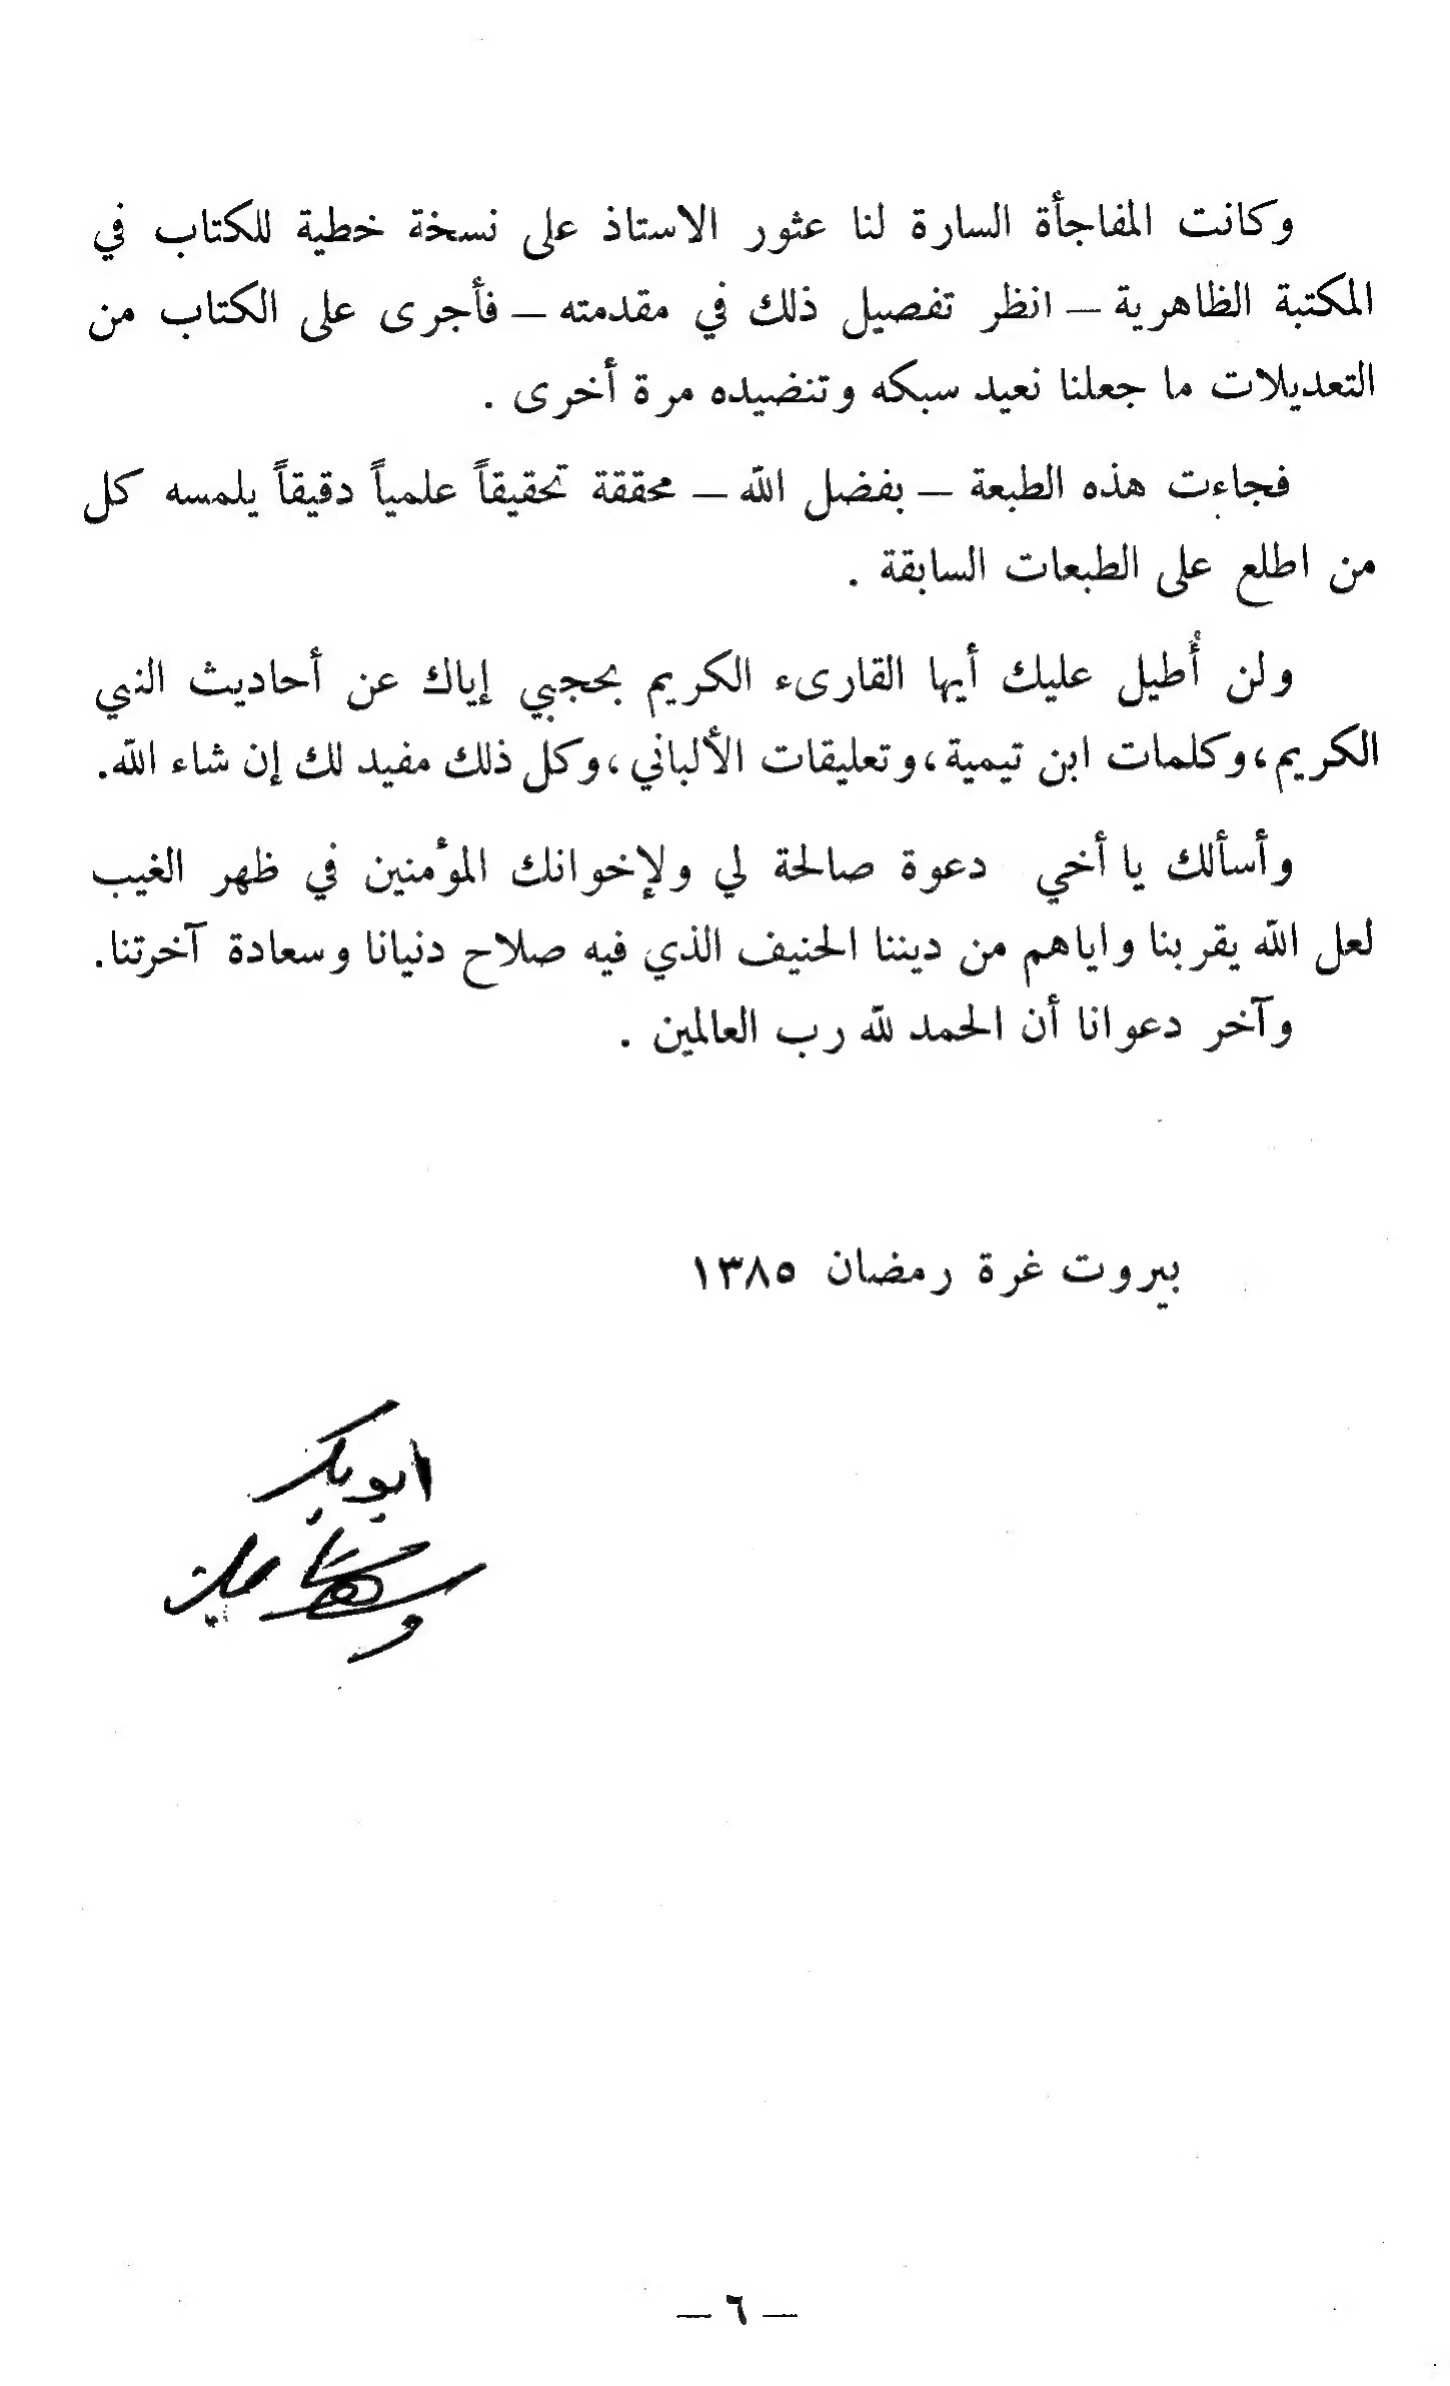 وكانت المفاجأة السارة لنا عثور الاستاذ على نسخة خطية للكتاب في
المكتبة الظاهرية – انظر تفصيل ذلك في مقدمته – فأجرى على الكتاب من
التعديلات ما جعلنا نعيد سبكه وتنضيده مرة أخرى .
فجاءت هذه الطبعة – بفضل الله – محققة تحقيقاً علمياً دقيقاً يلمسه كل
من اطلع على الطبعات السابقة .
ولن أُطيل عليك أيها القارىء الكريم بحجبي إياك عن أحاديث النبي
الكريم، وكلمات ابن تيمية، وتعليقات الألباني، وكل ذلك مفيد لك إن شاء الله.
وأسألك يا أخي دعوة صالحة لي ولإخوانك المؤمنين في ظهر الغيب
لعل الله يقربنا واياهم من ديننا الحنيف الذي فيه صلاح دنيانا وسعادة آخرتنا.
وآخر دعوانا أن الحمد لله رب العالمين .
بيروت غرة رمضان ١٣٨٥
ابو بكر
– ٦ –